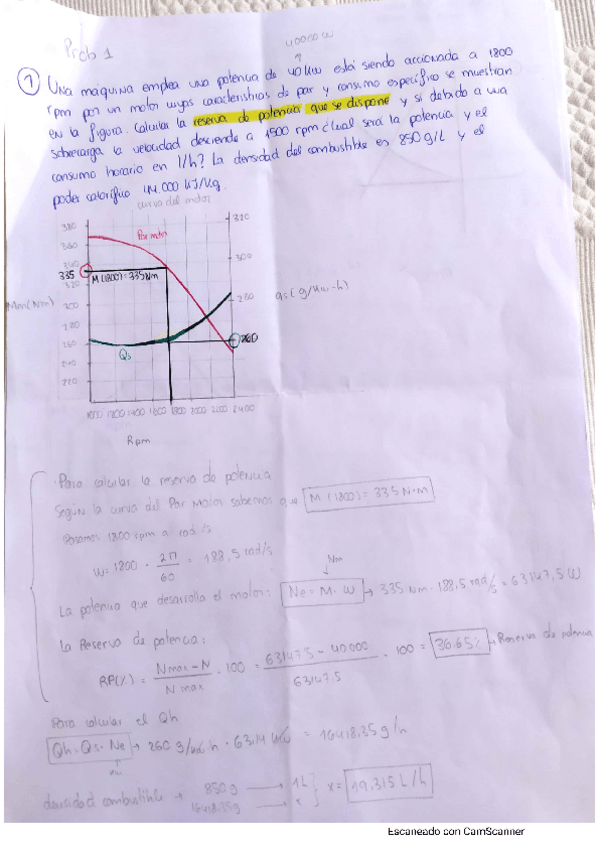 Prob 1
40000 W
① Una maquina emplea una potencia de 40 kW está siendo accionada a 1800
rpm por un motor cuyas características de par y consumo específico se muestran
en la figura. Calcular la reserva de potencia que se dispone y si debido a una
sobrecarga la velocidad desciende a 1500 rpm ¿cual será la potencia y el
consumo horario en l/h? La densidad del combustible es 850 g/L y el
poder calorífico 44.000 kJ/kg.
curva del motor
380
360
340
335
320
300
280
260
240
220
320
300
280
260
Par motor
M(1800)=335Nm
Mm(Nm)
qs(g/kw-h)
Qs
1000 1200 1400 1600 1800 2000 2200 2400
Rpm
· Para calcular la reserva de potencia
Según la curva del Par Motor sabemos que M(1800) = 335 N·m
Pasamos 1800 rpm a rad/s
W = 1800 · 2π/60 = 188,5 rad/s
Nm
La potencia que desarrolla el motor: Ne = M · w → 335 Nm · 188,5 rad/s = 63147,5 W
La Reserva de potencia:
RP(%) = Nmax - N / N max · 100 = 63147.5 - 40000 / 63147.5 · 100 = 36.65% → Reserva de potencia
Para calcular el Qh
Qh = Qs · Ne → 260 g/kW·h · 63.14 kW = 16418,35 g/h
kW
densidad combustible → 850 g → 1 L
16418.35g → x
x = 19,315 L/h
Escaneado con CamScanner